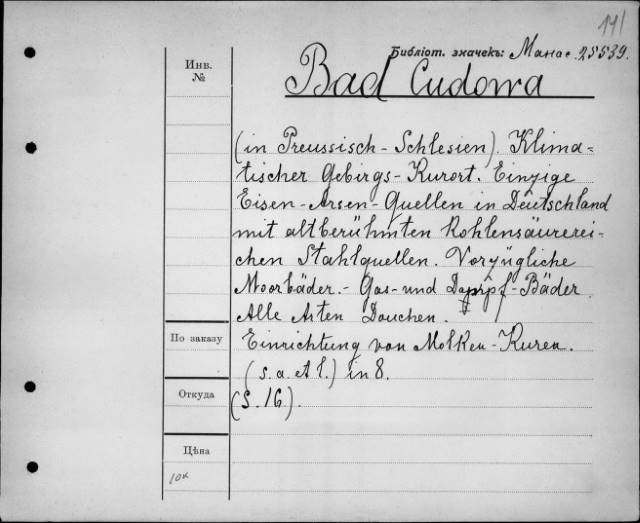 141
Библіот. значекъ: Манас. 25539.
Инв.
№
Bad Cudowa
(in Preussisch-Schlesien). Klima-
tischer Gebirgs-Kurort. Einzige
Eisen-Arsen-Quellen in Deutschland
mit altberühmten Kohlensäurerei-
chen Stahlquellen. Vorzügliche
Moorbäder.- Gas- und Dampf-Bäder.
Alle Arten Douchen.
По заказу
Einrichtung von Molken-Kuren.
(s. a. et l.) in 8.
Откуда
(S. 16).
Цѣна
10к